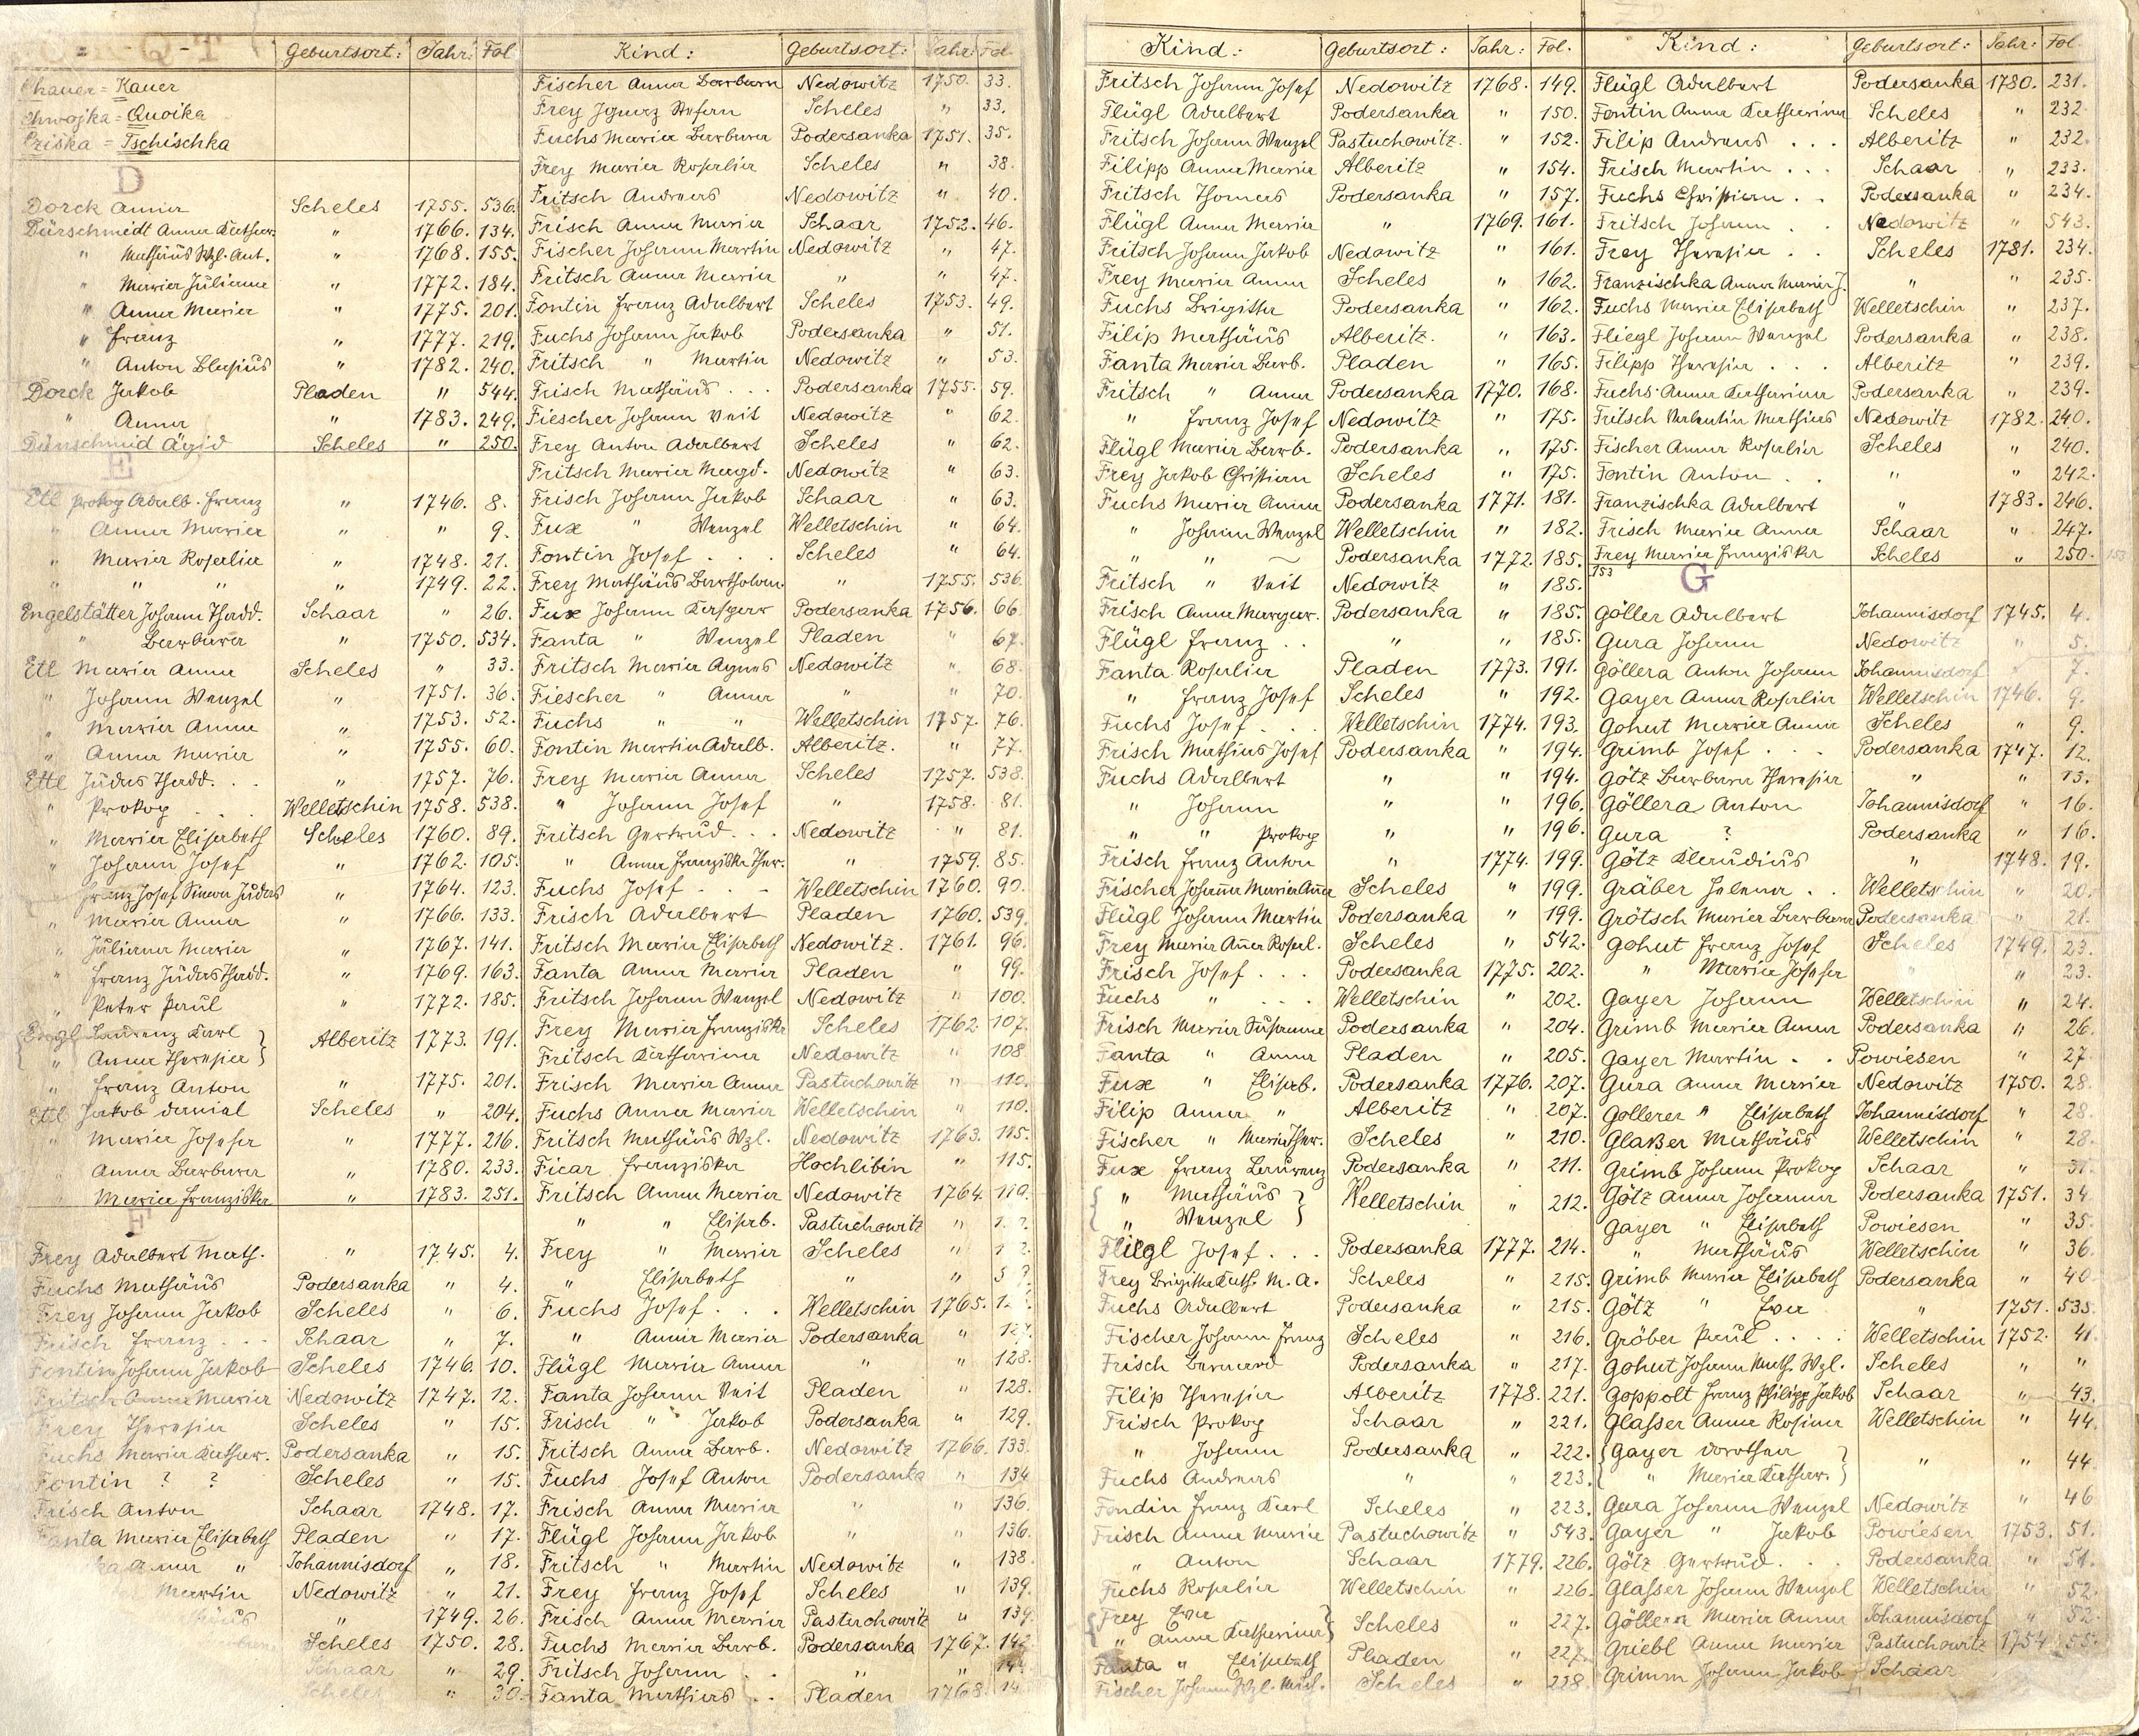 = Q T -
Geburtsort: Jahr: Fol
Chauer = Kauer
Chwojka = Quoika
Cziska = Tschischka
D
Dorck Anna Scheles 1755. 536.
Dürschmidt Anna Kathar. " 1766. 134.
" Mathäus Wzl. Ant. " 1768. 155.
" Maria Juliana " 1772. 184.
" Anna Maria " 1775. 201.
" Franz " 1777. 219.
" Anton Blasius " 1782. 240.
Dorck Jakob Pladen " 544.
" Anna " 1783. 249.
Dürschmid Ägid Scheles " 250.
E
Etl Prokop Adalb. Franz " 1746. 8.
" Anna Maria " " 9.
" Maria Rosalia " 1748. 21.
" " " " 1749. 22.
Engelstätter Johann Thadd. Schaar " 26.
" Barbara " 1750. 534.
Etl Maria Anna Scheles " 33.
" Johann Wenzel " 1751. 36.
" Maria Anna " 1753. 52.
" Anna Maria " 1755. 60.
Ettl Judas Thadd. . . " 1757. 76.
" Prokop . . Welletschin 1758. 538.
" Maria Elisabeth Scheles 1760. 89.
" Johann Josef " 1762. 105.
" Franz Josef Simon Judas " 1764. 123.
" Maria Anna " 1766. 133.
" Juliana Maria " 1767. 141.
" Franz Judas Thadd. " 1769. 163.
" Peter Paul " 1772. 185.
{ Laurenz Karl } Alberitz 1773. 191.
{ " Anna Theresia }
" Franz Anton " 1775. 201.
Ettl Jakob Daniel Scheles " 204.
" Maria Josefa " 1777. 216.
" Anna Barbara " 1780. 233.
" Maria Franziska " 1783. 251.
F
Frey Adalbert Math. " 1745. 4.
Fuchs Mathäus Podersanka " 4.
Frey Johann Jakob Scheles " 6.
Frisch Franz . . . Schaar " 7.
Fontin Johann Jakob Scheles 1746. 10.
Fritsch Anna Maria Nedowitz 1747. 12.
Frey Theresia Scheles " 15.
Fuchs Maria Kathar. Podersanka " 15.
Fontin ? ? Scheles " 15.
Frisch Anton Schaar 1748. 17.
Fanta Maria Elisabeth Pladen " 17.
Anna " Johannisdorf " 18.
Martin Nedowitz " 21.
" 1749. 26.
Scheles 1750. 28.
Schaar " 29.
Scheles " 30.
Kind: Geburtsort: Jahr: Fol.
Fischer Anna Barbara Nedowitz 1750. 33.
Frey Ignaz Stefan Scheles " 33.
Fuchs Maria Barbara Podersanka 1751. 35.
Frey Maria Rosalia Scheles " 38.
Fritsch Andreas Nedowitz " 40.
Frisch Anna Maria Schaar 1752. 46.
Fischer Johann Martin Nedowitz " 47.
Fritsch Anna Maria " " 47.
Fontin Franz Adalbert Scheles 1753. 49.
Fuchs Johann Jakob Podersanka " 51.
Fritsch " Martin Nedowitz " 53.
Frisch Mathäus . . . Podersanka 1755. 59.
Fiescher Johann Veit Nedowitz " 62.
Frey Anton Adalbert Scheles " 62.
Fritsch Maria Magd. Nedowitz " 63.
Frisch Johann Jakob Schaar " 63.
Fux " Wenzel Welletschin " 64.
Fontin Josef . . . Scheles " 64.
Frey Mathäus Bartholom. " 1755. 536.
Fux Johann Kaspar Podersanka 1756. 66.
Fanta " Wenzel Pladen " 67.
Fritsch Maria Agnes Nedowitz " 68.
Fiescher " Anna " " 70.
Fuchs " " Welletschin 1757. 76.
Fontin Martin Adalb. Alberitz. " 77.
Frey Maria Anna Scheles 1757. 538.
" Johann Josef " 1758. 81.
Fritsch Gertrud . . . Nedowitz " 81.
" Anna Franziska Ther. " 1759. 85.
Fuchs Josef - - - Welletschin 1760. 90.
Frisch Adalbert Pladen 1760. 539.
Fritsch Maria Elisabeth Nedowitz. 1761. 96.
Fanta Anna Maria Pladen " 99.
Fritsch Johann Wenzel Nedowitz " 100.
Frey Maria Franziska Scheles 1762. 107.
Fritsch Katharina Nedowitz " 108
Frisch Maria Anna Pastuchowitz " 110.
Fuchs Anna Maria Welletschin " 110.
Fritsch Mathäus Wzl. Nedowitz 1763. 115.
Ficar Franziska Hochlibin " 115.
Fritsch Anna Maria Nedowitz 1764. 119.
" " Elisab. Pastuchowitz "
Frey " Maria Scheles "
" Elisabeth " "
Fuchs Josef . . . Welletschin 1765.
" Anna Maria Podersanka " 127.
Flügl Maria Anna " " 128.
Fanta Johann Veit Pladen " 128.
Frisch " Jakob Podersanka " 129.
Fritsch Anna Barb. Nedowitz 1766. 133.
Fuchs Josef Anton Podersanka " 134
Frisch Anna Maria " " 136.
Flügl Johann Jakob " " 136.
Fritsch " Martin Nedowitz " 138.
Frey Franz Josef Scheles " 139.
Frisch Anna Maria Pastuchowitz " 139.
Fuchs Maria Barb. Podersanka 1767. 142
Fritsch Johann . . " "
Fanta Mathias . . Pladen 1768.
Kind: Geburtsort: Jahr: Fol.
Fritsch Johann Josef Nedowitz 1768. 149.
Flügl Adalbert Podersanka " 150.
Fritsch Johann Wenzel Pastuchowitz. " 152.
Filipp Anna Maria Alberitz " 154.
Fritsch Thomas Podersanka " 157.
Flügl Anna Maria " 1769. 161.
Fritsch Johann Jakob Nedowitz " 161.
Frey Maria Anna Scheles " 162.
Fuchs Brigitta Podersanka " 162.
Filip Mathäus Alberitz. " 163.
Fanta Maria Barb. Pladen " 165.
Fritsch " Anna Podersanka 1770. 168.
" Franz Josef Nedowitz " 175.
Flügl Maria Barb. Podersanka " 175.
Frey Jakob Christian Scheles " 175.
Fuchs Maria Anna Podersanka 1771. 181.
" Johann Wenzel Welletschin " 182.
" " ~ Podersanka 1772. 185.
Fritsch " Veit Nedowitz " 185.
Frisch Anna Margar. Podersanka " 185.
Flügl Franz . . " " 185.
Fanta Rosalia Pladen 1773. 191.
" Franz Josef Scheles " 192.
Fuchs Josef . . . Welletschin 1774. 193.
Frisch Mathias Josef Podersanka " 194.
Fuchs Adalbert " " 194.
" Johann " " 196.
" " Prokop " " 196.
Frisch Franz Anton " 1774. 199.
Fischer Johanna Maria Anna Scheles " 199.
Flügl Johann Martin Podersanka " 199.
Frey Maria Anna Rosal. Scheles " 542.
Frisch Josef . . . Podersanka 1775. 202.
Fuchs " . . . Welletschin " 202.
Frisch Maria Susanna Podersanka " 204.
Fanta " Anna Pladen " 205.
Fux " Elisab. Podersanka 1776. 207.
Filip Anna " Alberitz " 207.
Fischer " Maria Ther. Scheles " 210.
Fux Franz Laurenz Podersanka " 211.
{ " Mathäus } Welletschin " 212.
{ " Wenzel }
Fliegl Josef . . . Podersanka 1777. 214.
Frey Brigitta Kath. M. A. Scheles " 215.
Fuchs Adalbert Podersanka " 215.
Fischer Johann Franz Scheles " 216.
Frisch Bernard Podersanka " 217.
Filip Theresia Alberitz 1778. 221.
Frisch Prokop Schaar " 221.
" Johann Podersanka " 222.
Fuchs Andreas " " 223.
Fondin Franz Karl Scheles " 223.
Frisch Anna Maria Pastuchowitz " 543.
" Anton Schaar 1779. 226.
Fuchs Rosalia Welletschin " 226.
{ Frey Eva } Scheles " 227.
{ " Anna Katharina }
Fanta " Elisabeth Pladen " 227.
Fischer Johann Wzl. Mich. Scheles " 228.
Kind: Geburtsort: Jahr: Fol.
Flügl Adalbert Podersanka 1780. 231.
Fontin Anna Katharina Scheles " 232
Filip Andreas . . . Alberitz " 232.
Frisch Martin . . . Schaar " 233.
Fuchs Christian . . Podersanka " 234.
Fritsch Johann . . Nedowitz " 543.
Frey Theresia . . Scheles 1781. 234.
Franzischka Anna Maria J. " " 235.
Fuchs Maria Elisabeth Welletschin " 237.
Fliegl Johann Wenzel Podersanka " 238.
Filipp Theresia . . . Alberitz " 239.
Fuchs Anna Katharina Podersanka " 239.
Fritsch Valentin Mathias Nedowitz 1782. 240.
Fischer Anna Rosalia Scheles " 240.
Fontin Anton . . " " 242.
Franzischka Adalbert " 1783. 246.
Frisch Maria Anna Schaar " 247.
Frey Maria Franziska Scheles " 250.
153
G
Göller Adalbert Johannisdorf 1745. 4.
Gura Johann Nedowitz " 5.
Göllera Anton Johann Johannisdorf " 7.
Gayer Anna Rosalia Welletschin 1746. 9.
Gohut Maria Anna Scheles " 9.
Grimb Josef . . . Podersanka 1747. 12.
Götz Barbara Theresia " " 15.
Göllera Anton Johannisdorf " 16.
Gura ? Podersanka " 16.
Götz Klaudius " 1748. 19.
Gräber Helena . . Welletschin " 20.
Grötsch Maria Barbara Podersanka " 21.
Gohut Franz Josef Scheles 1749. 23.
" Maria Josefa " " 23.
Gayer Johann Welletschin " 24.
Grimb Maria Anna Podersanka " 26.
Gayer Martin . . Powiesen " 27
Gura Anna Maria Nedowitz 1750. 28.
Gollerer " Elisabeth Johannisdorf " 28.
Glaßer Mathäus Welletschin " 28.
Grimb Johann Prokop Schaar " 31.
Götz Anna Johanna Podersanka 1751. 34
Gayer " Elisabeth Powiesen " 35.
" Mathäus Welletschin " 36.
Grimb Maria Elisabeth Podersanka " 40.
Götz " Eva " 1751. 535.
Gröber Paul . . . . Welletschin 1752. 41.
Gohut Johann Math. Wzl. Scheles " "
Goppolt Franz Philipp Jakob Schaar " 43.
Glasser Anna Rosina Welletschin " 44.
{ Gayer Dorothea } " " 44.
{ " Maria Kathar. }
Gura Johann Wenzel Nedowitz " 46
Gayer " Jakob Powiesen 1753. 51.
Götz Gertrud . . . Podersanka " 51.
Glasser Johann Wenzel Welletschin " 52.
Göllera Maria Anna Johannisdorf " 52.
Griebl Anna Maria Pastuchowitz 1754 55.
Grimm Johann Jakob Schaar